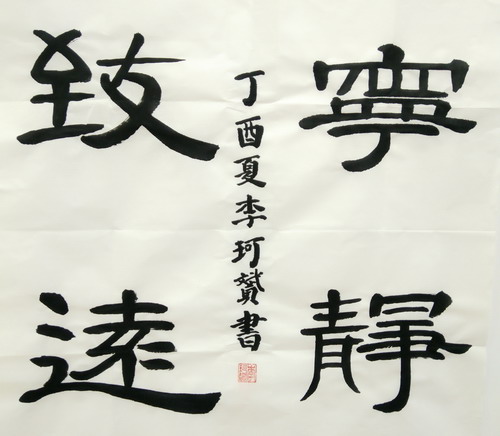 寧靜
致遠
丁酉夏李珂贇書